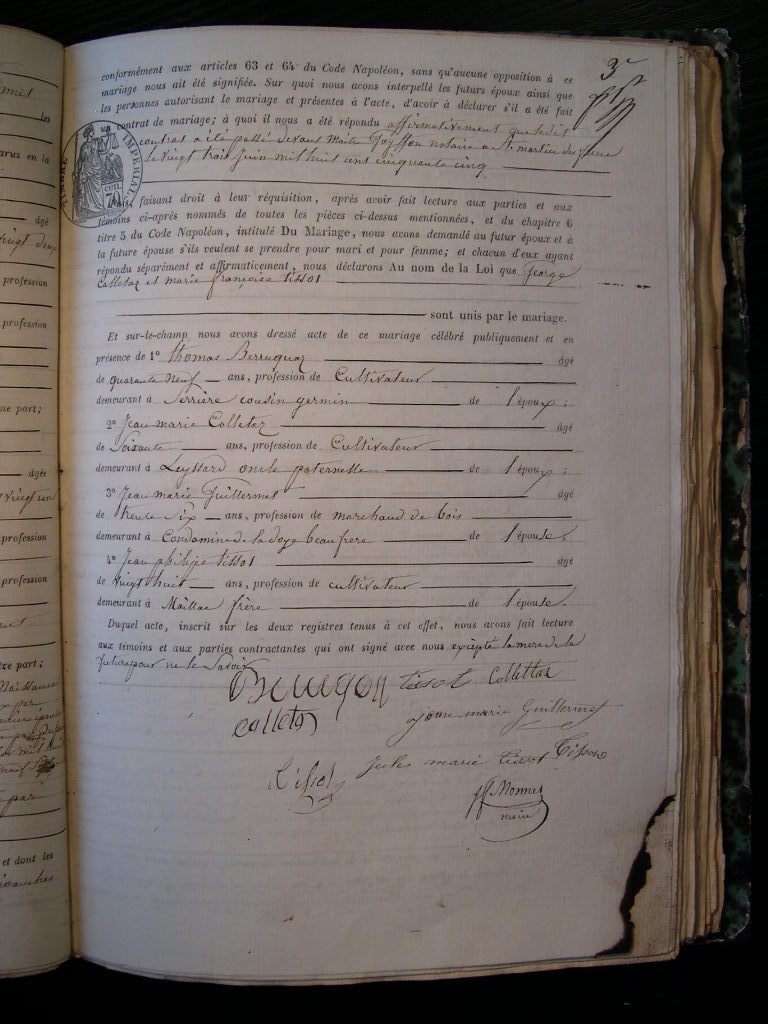 3
conformément aux articles 63 et 64 du Code Napoléon, sans qu'aucune opposition à ce
mariage nous ait été signifiée. Sur quoi nous avons interpellé les futurs époux ainsi que
les personnes autorisant le mariage et présentes à l'acte, d'avoir à déclarer s'il a été fait
contrat de mariage; à quoi il nous a été répondu affirmativement que ledit
contrat a été passé devant Maître notaire a St martin du frene
le vingt trois Juin mil huit cens cinquante cinq
TIMBRE IMPERIAL
CEN. 70
faisant droit à leur réquisition, après avoir fait lecture aux parties et aux
témoins ci-après nommés de toutes les pièces ci-dessus mentionnées, et du chapitre 6
titre 5 du Code Napoléon, intitulé Du Mariage, nous avons demandé au futur époux et à
la future épouse s'ils veulent se prendre pour mari et pour femme; et chacun d'eux ayant
répondu séparément et affirmativement, nous déclarons Au nom de la Loi que George
Colletaz et marie françoise tissot
sont unis par le mariage.
Et sur-le-champ nous avons dressé acte de ce mariage célébré publiquement et en
présence de 1° thomas Berruquaz âgé
de quarante Neuf ans, profession de Cultivateur
demeurant à Serrière cousin germin de l'époux;
2° Jean marie Colletaz âgé
de Soixante ans, profession de Cultivateur
demeurant à Leyssard oncle paternelle de l'époux;
3° Jean marie Guillermet âgé
de trente Six ans, profession de marchand de bois
demeurant à Condamine de la doye beaufrere de l'épouse.
4° Jean philipe tissot âgé
de vingt huit ans, profession de cultivateur
demeurant à Maillac frère de l'épouse.
Duquel acte, inscrit sur les deux registres tenus à cet effet, nous avons fait lecture
aux témoins et aux parties contractantes qui ont signé avec nous excepté la mere de la
future pour ne le Savoir
tissot Collettaz
Colletaz
Jean marie Guillermet
Tissot
Jules marie tissot Tissot
Monnet
maire